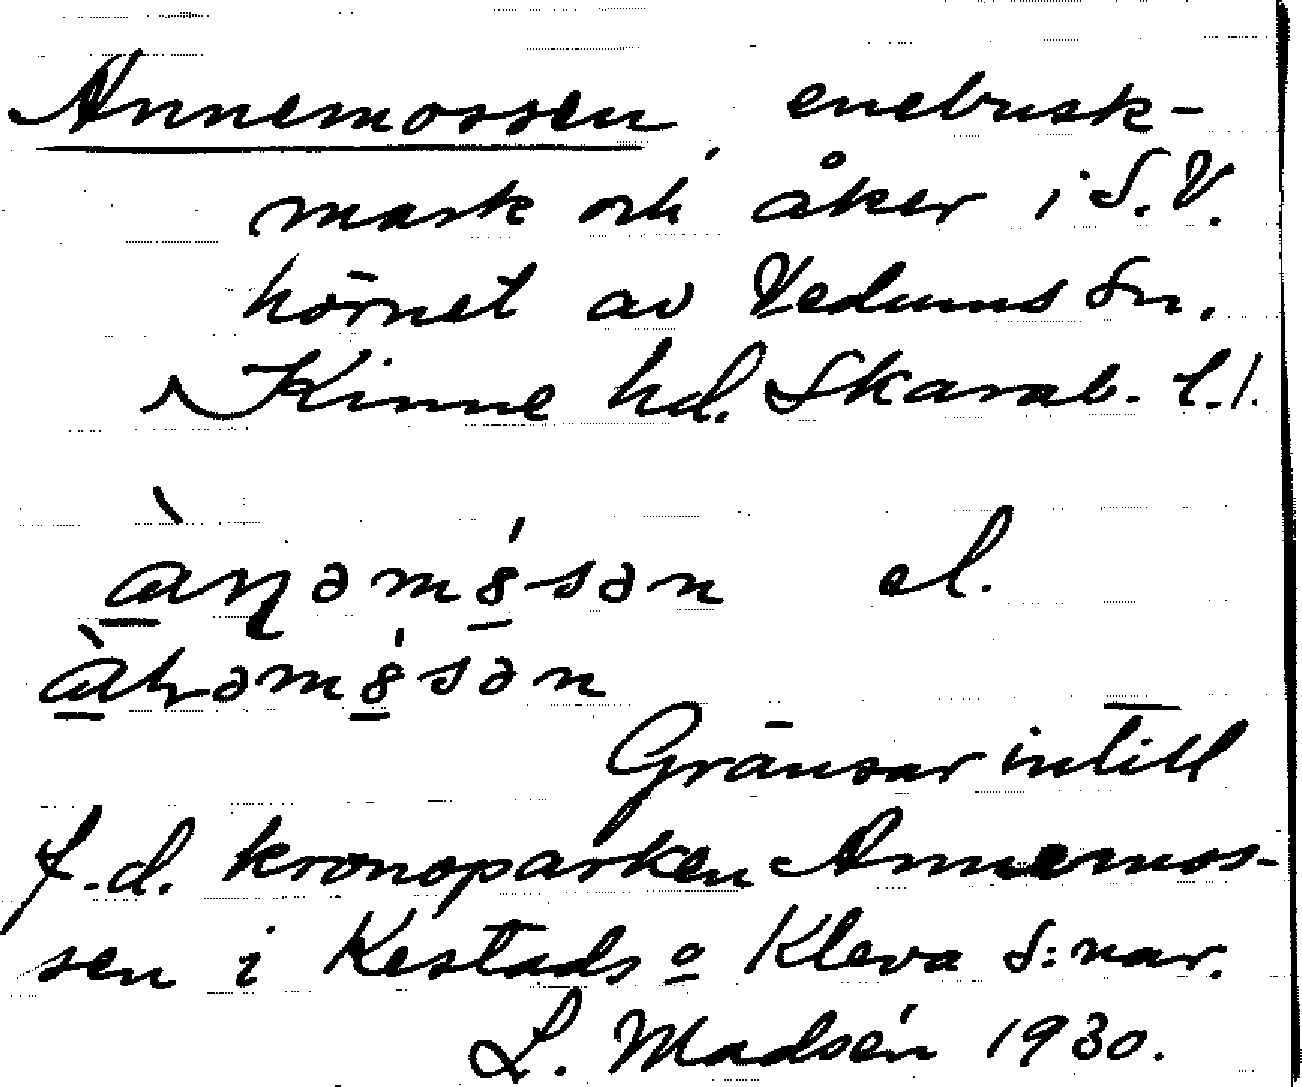 Annemossen, enebusk-
mark och åker i S.V.
hörnet av Vedums Sn.
Kinne hd. Skarab. l.l.
el.
Gränsar intill
f.d. kronoparken Annemos-
sen i Kestads o Kleva S:nar.
L. Madsén 1930.